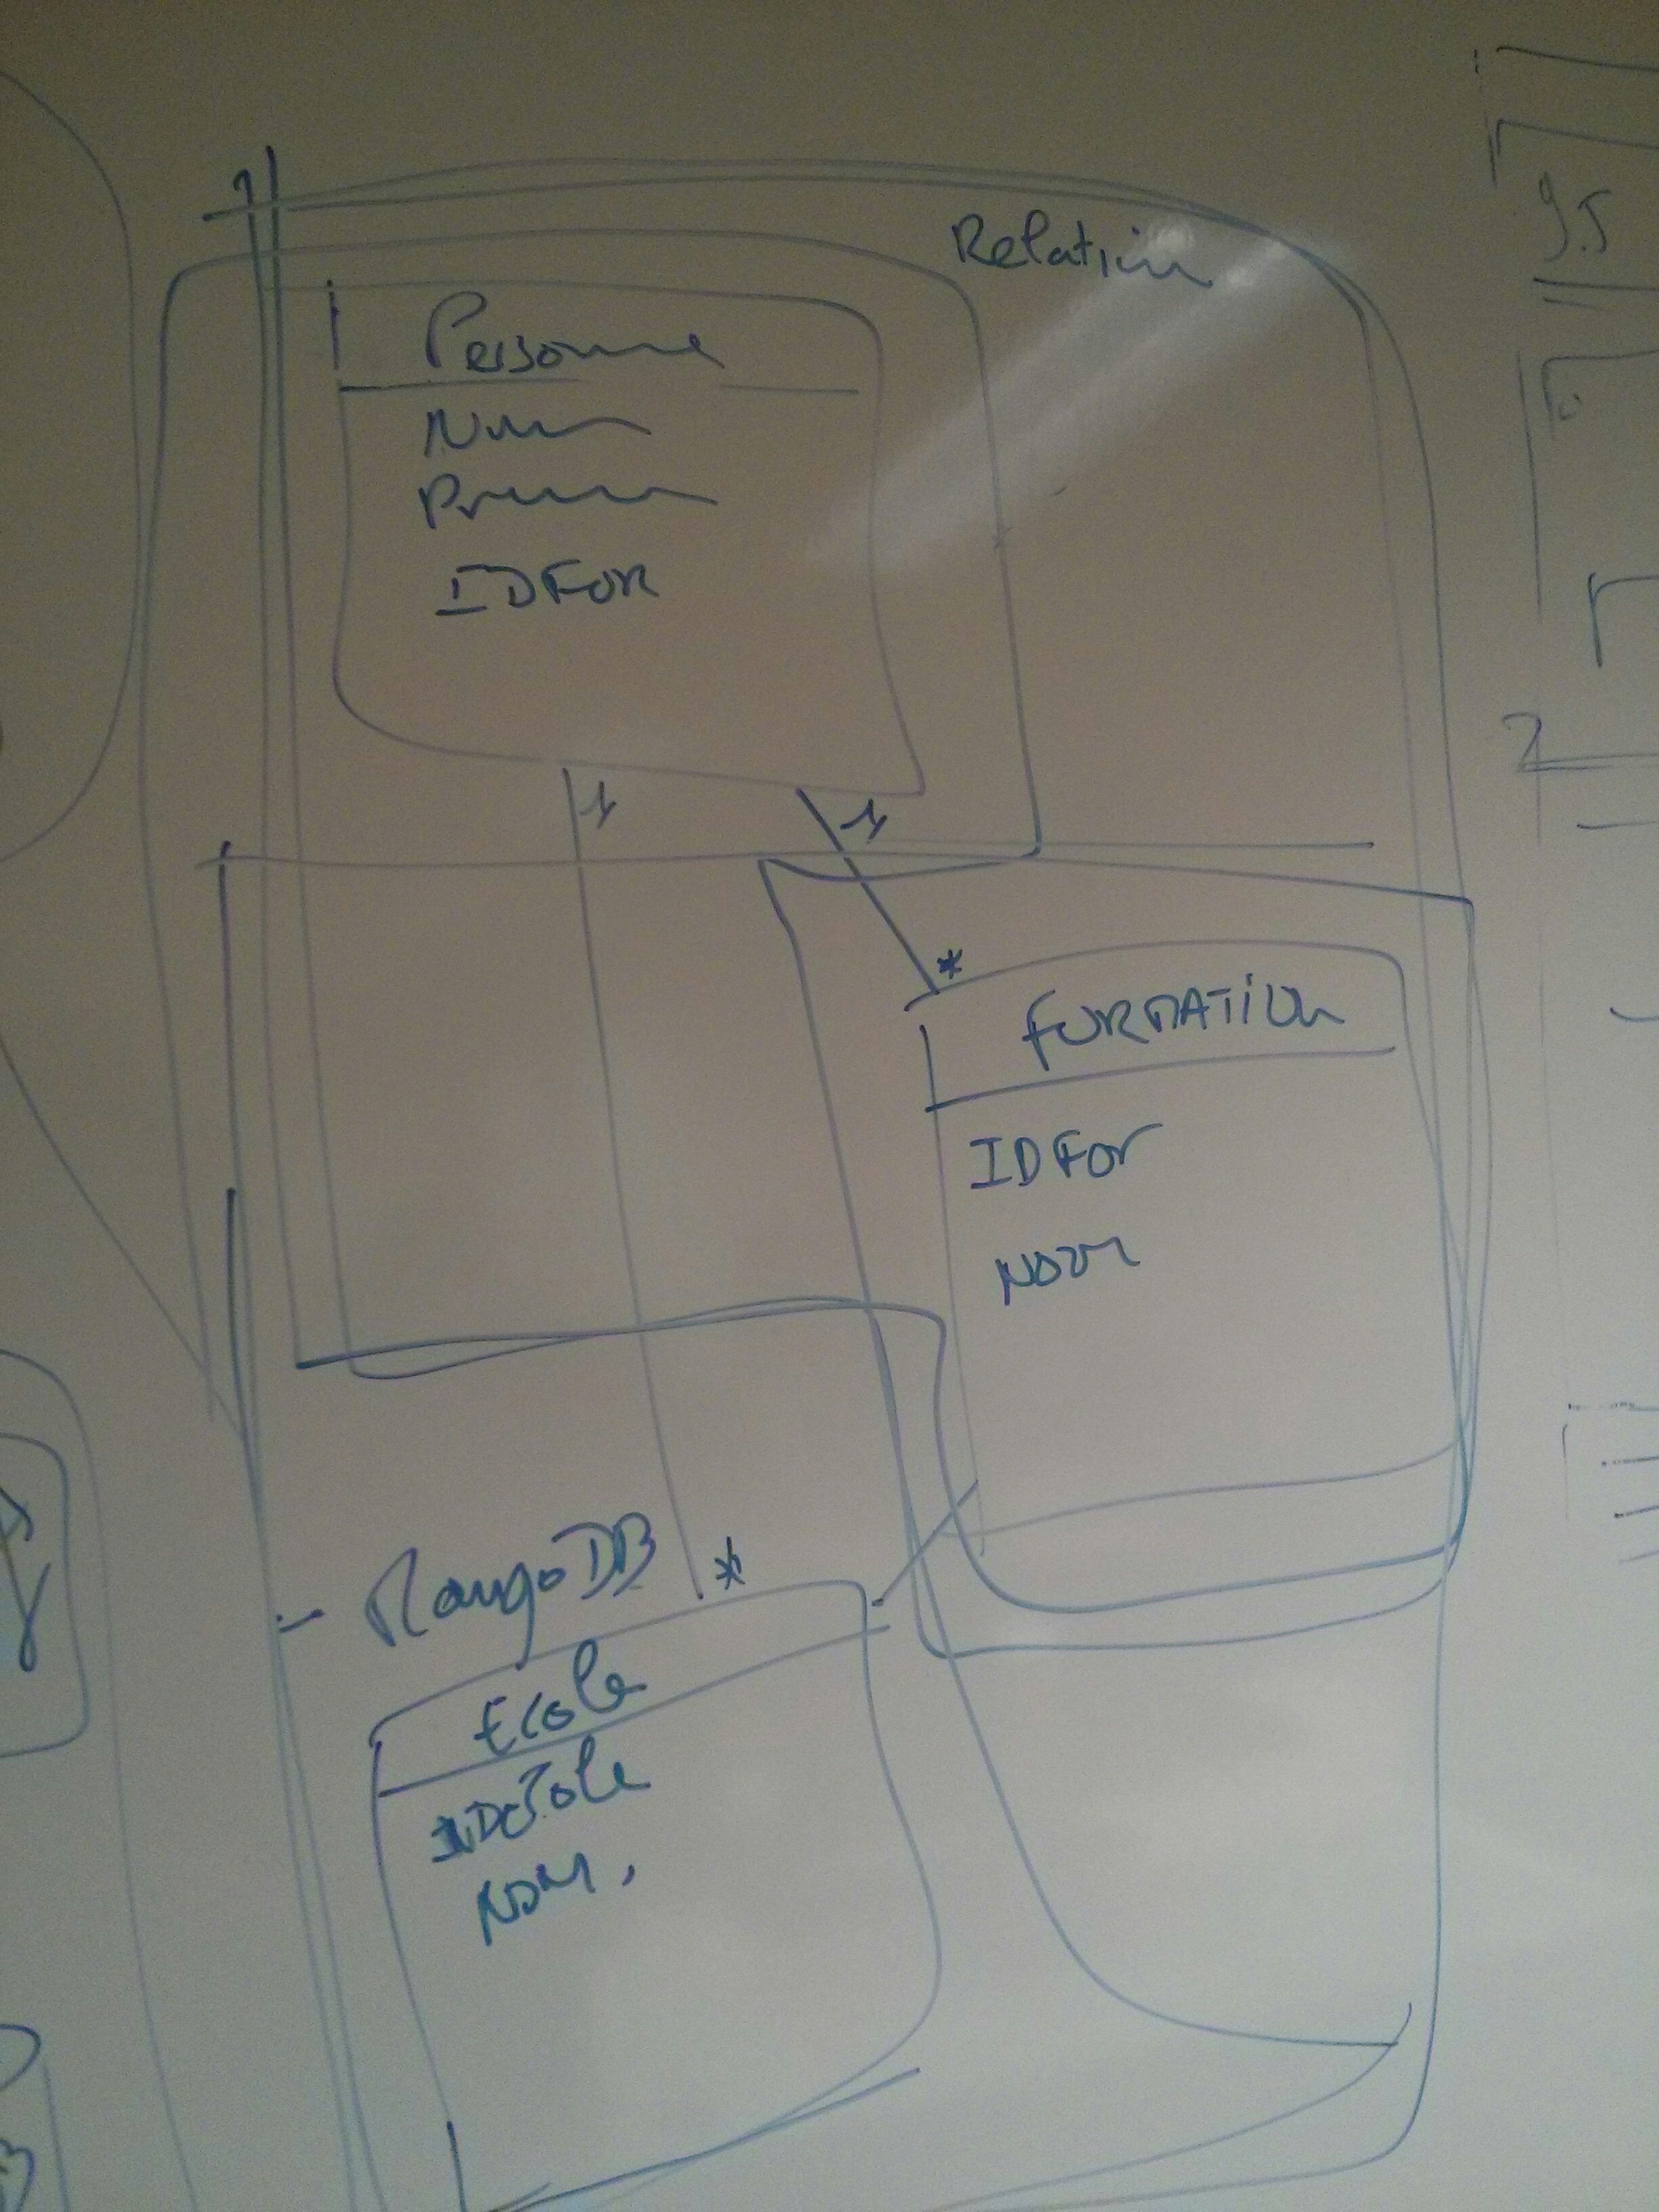 Relation
Personne
Nom
Prenom
IDFOR
1
1
*
FORMATION
IDFor
NOM
MongoDB
*
Ecole
IDEcole
NOM,